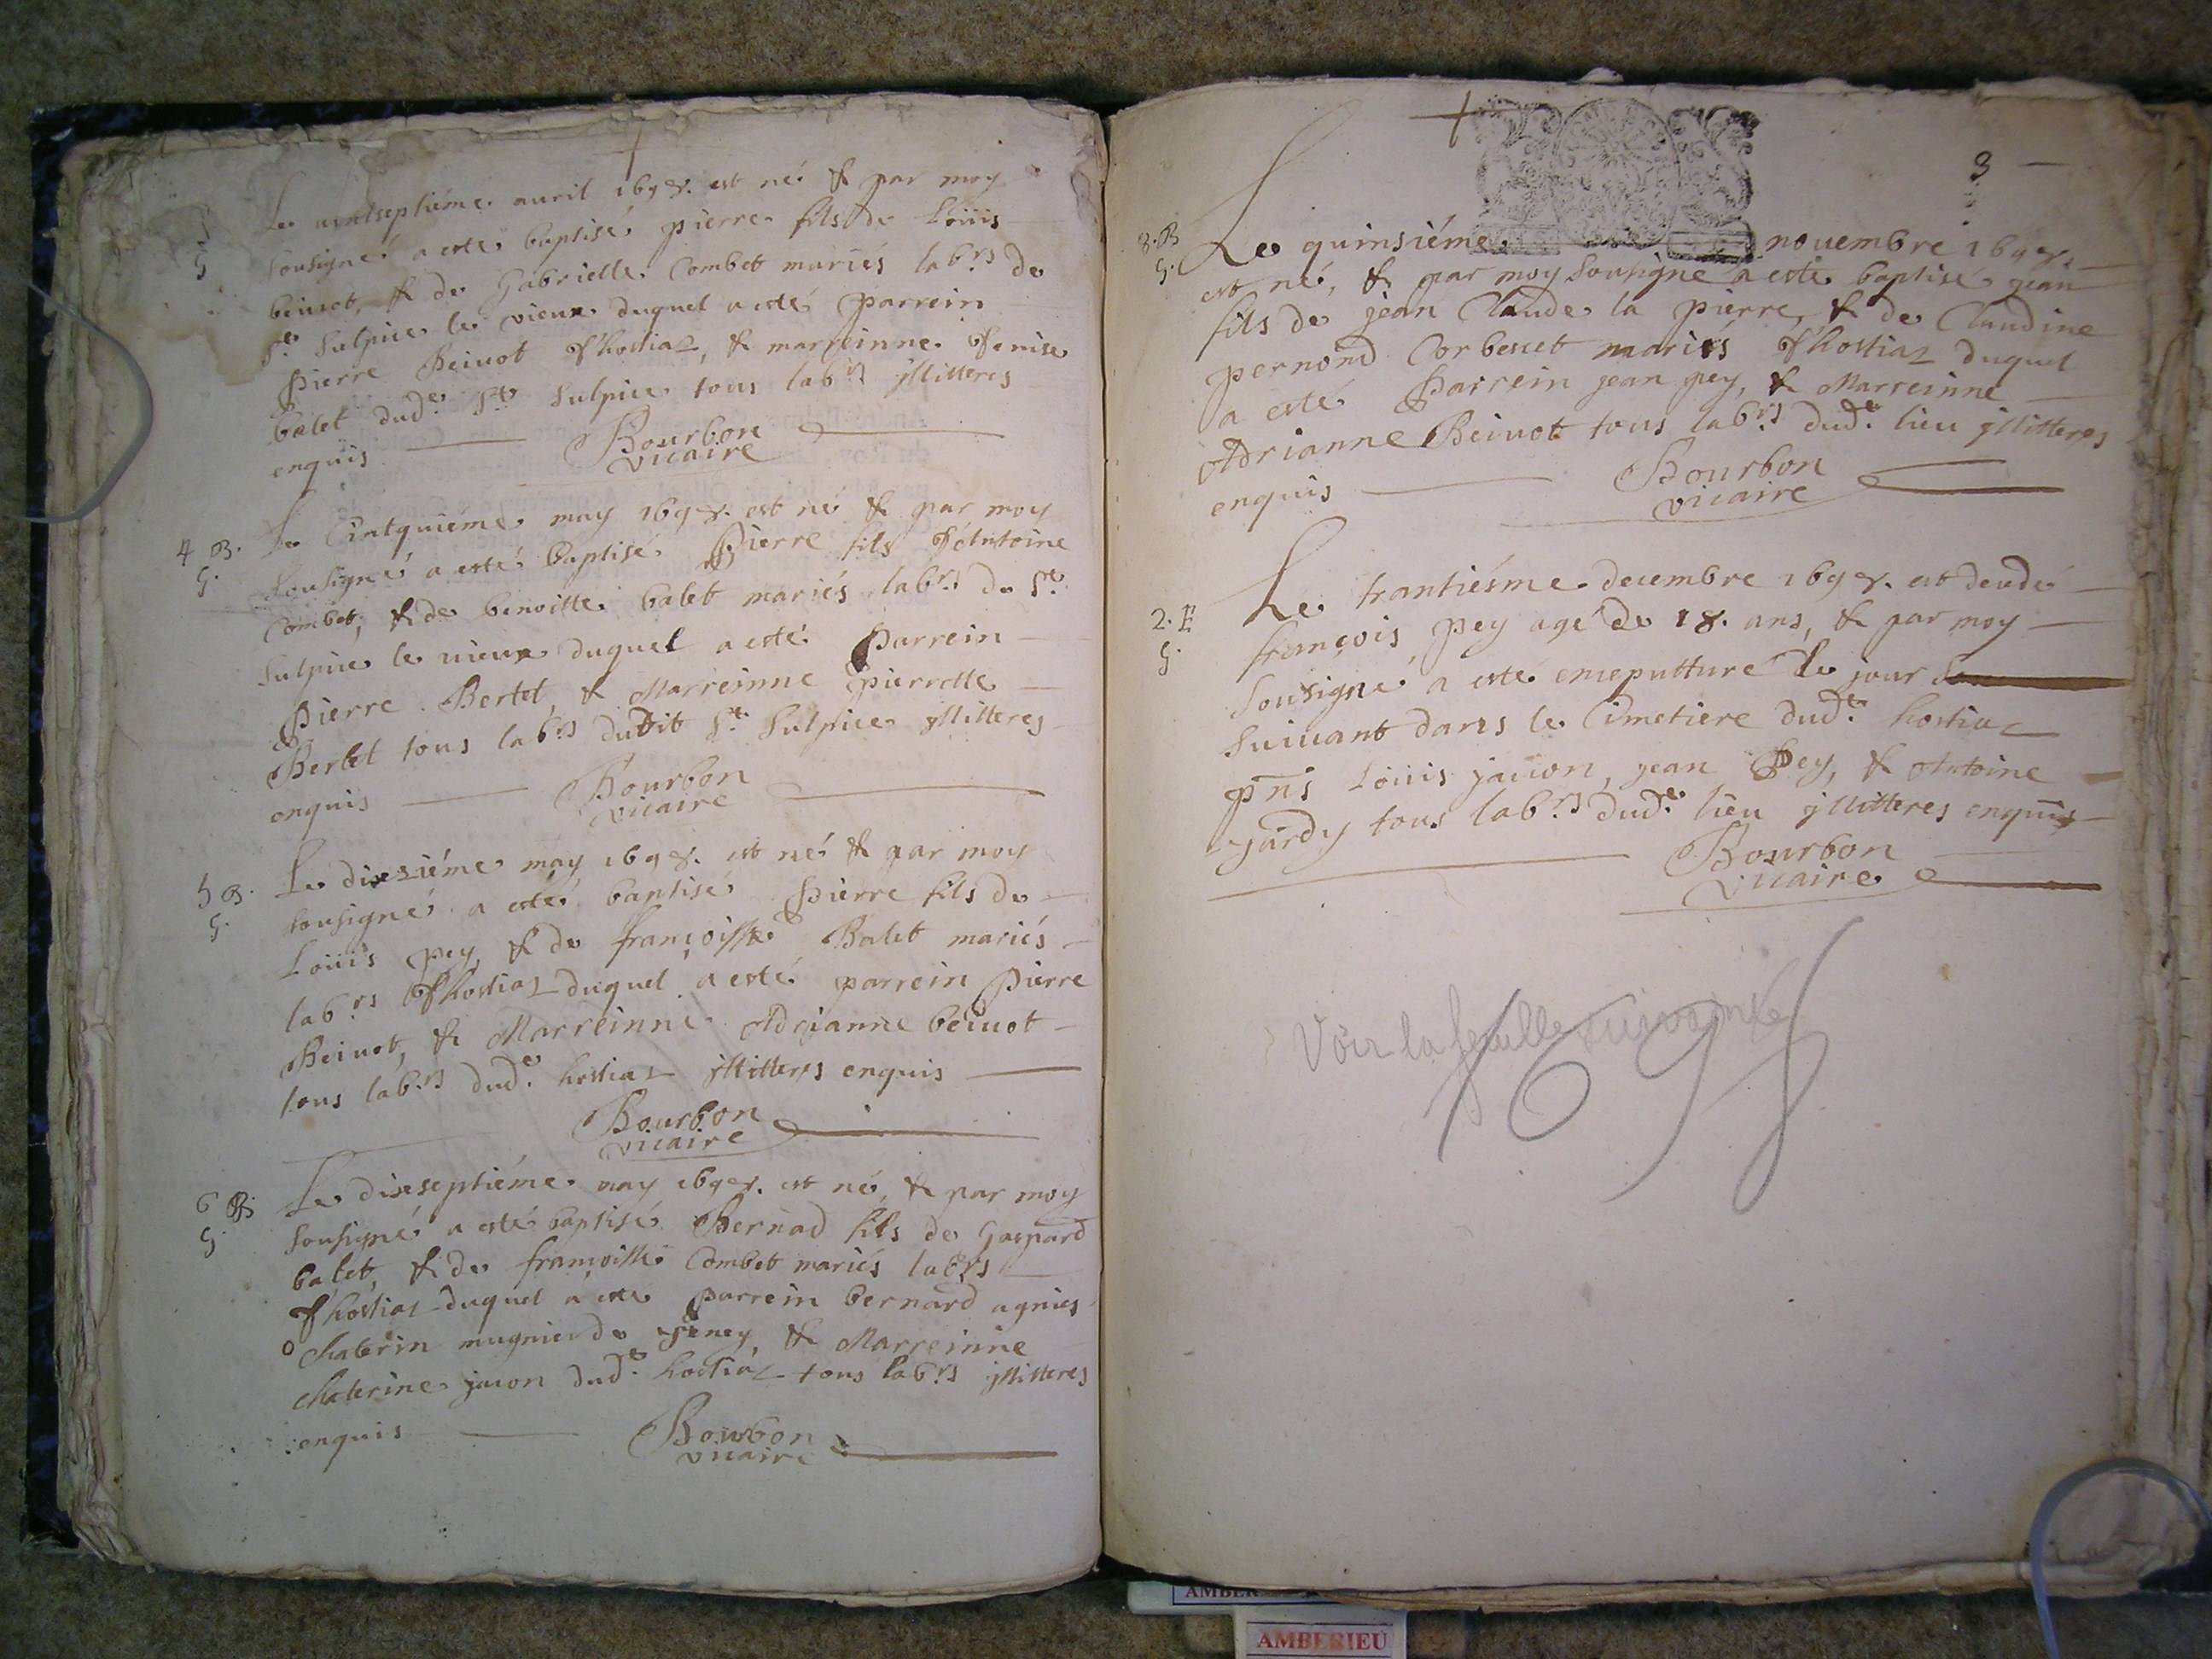 Le vintseptiéme auril 1698. est né & par moy
sousigné a esté baptisé pierre fils de Loüis
beiuot, & de Gabrielle Combet mariés lab.rs de
S.t Sulpice le vieux duquel a esté parrein
Pierre Beiuot d'hostiaz, & marreinne denise
balet dud.t S.t Sulpice tous lab.rs jllitteres
enquis
Bourbon
vicaire
4 B.
G.
Le Cintquiéme may 1698. est né & par moy
sousigné a esté baptisé Pierre fils d'Antoine
Combet, & de benoitte balet mariés lab.rs de S.t
Sulpice le vieux duquel a esté Parrein
Pierre Bertet, & Marreinne pierrette
Bertet tous lab.rs dudit S.t Sulpice jllitteres
enquis
Bourbon
vicaire
5 B.
G.
Le dixeziéme may 1698. est né & par moy
sousigné a esté baptisé Pierre fils de
Loüis pey, & de françoisse Balet mariés
lab.rs d'hostiaz duquel a esté parrein Pierre
Beiuot, & Marreinne Adrianne beiuot
tous lab.rs dud.t hostiaz jllitteres enquis
Bourbon
vicaire
6 B.
G.
Le dixeseptiéme may 1698. est né, & par moy
sousigné a esté baptisé Bernad fils de Gaspard
balet, & de françoisse Combet mariés lab.rs
d'hostiaz duquel a esté parrein bernard agnies
Chaterin mugnier de & Marreinne
Chaterine jauon dud.t hostiaz tous lab.rs jllitteres
enquis
Bourbon
vicaire
3
8. B
G.
Le quinsiéme nouembre 1698.
est né, & par moy sousigné a esté baptisé jean
fils de jean Claude la pierre, & de Claudine
pernond Corbescet mariés d'hostiaz duquel
a esté Parrein jean pey, & Marreinne
Adrianne Beiuot tous lab.rs dud.t lieu jllitteres
enquis
Bourbon
vicaire
2. E
G.
Le trantiésme decembre 1698. est decedé
françois pey agé de 18. ans, & par moy
sousigné a esté enseputturé le jour
suiuant dans le Cimetiere dud.t hostiaz
pñs Loüis jauon, jean Pey, & Antoine
jardy tous lab.rs dud.t lieu jllitteres enquis
Bourbon
vicaire
Voir la feuille suivante
1698
AMBERIEU